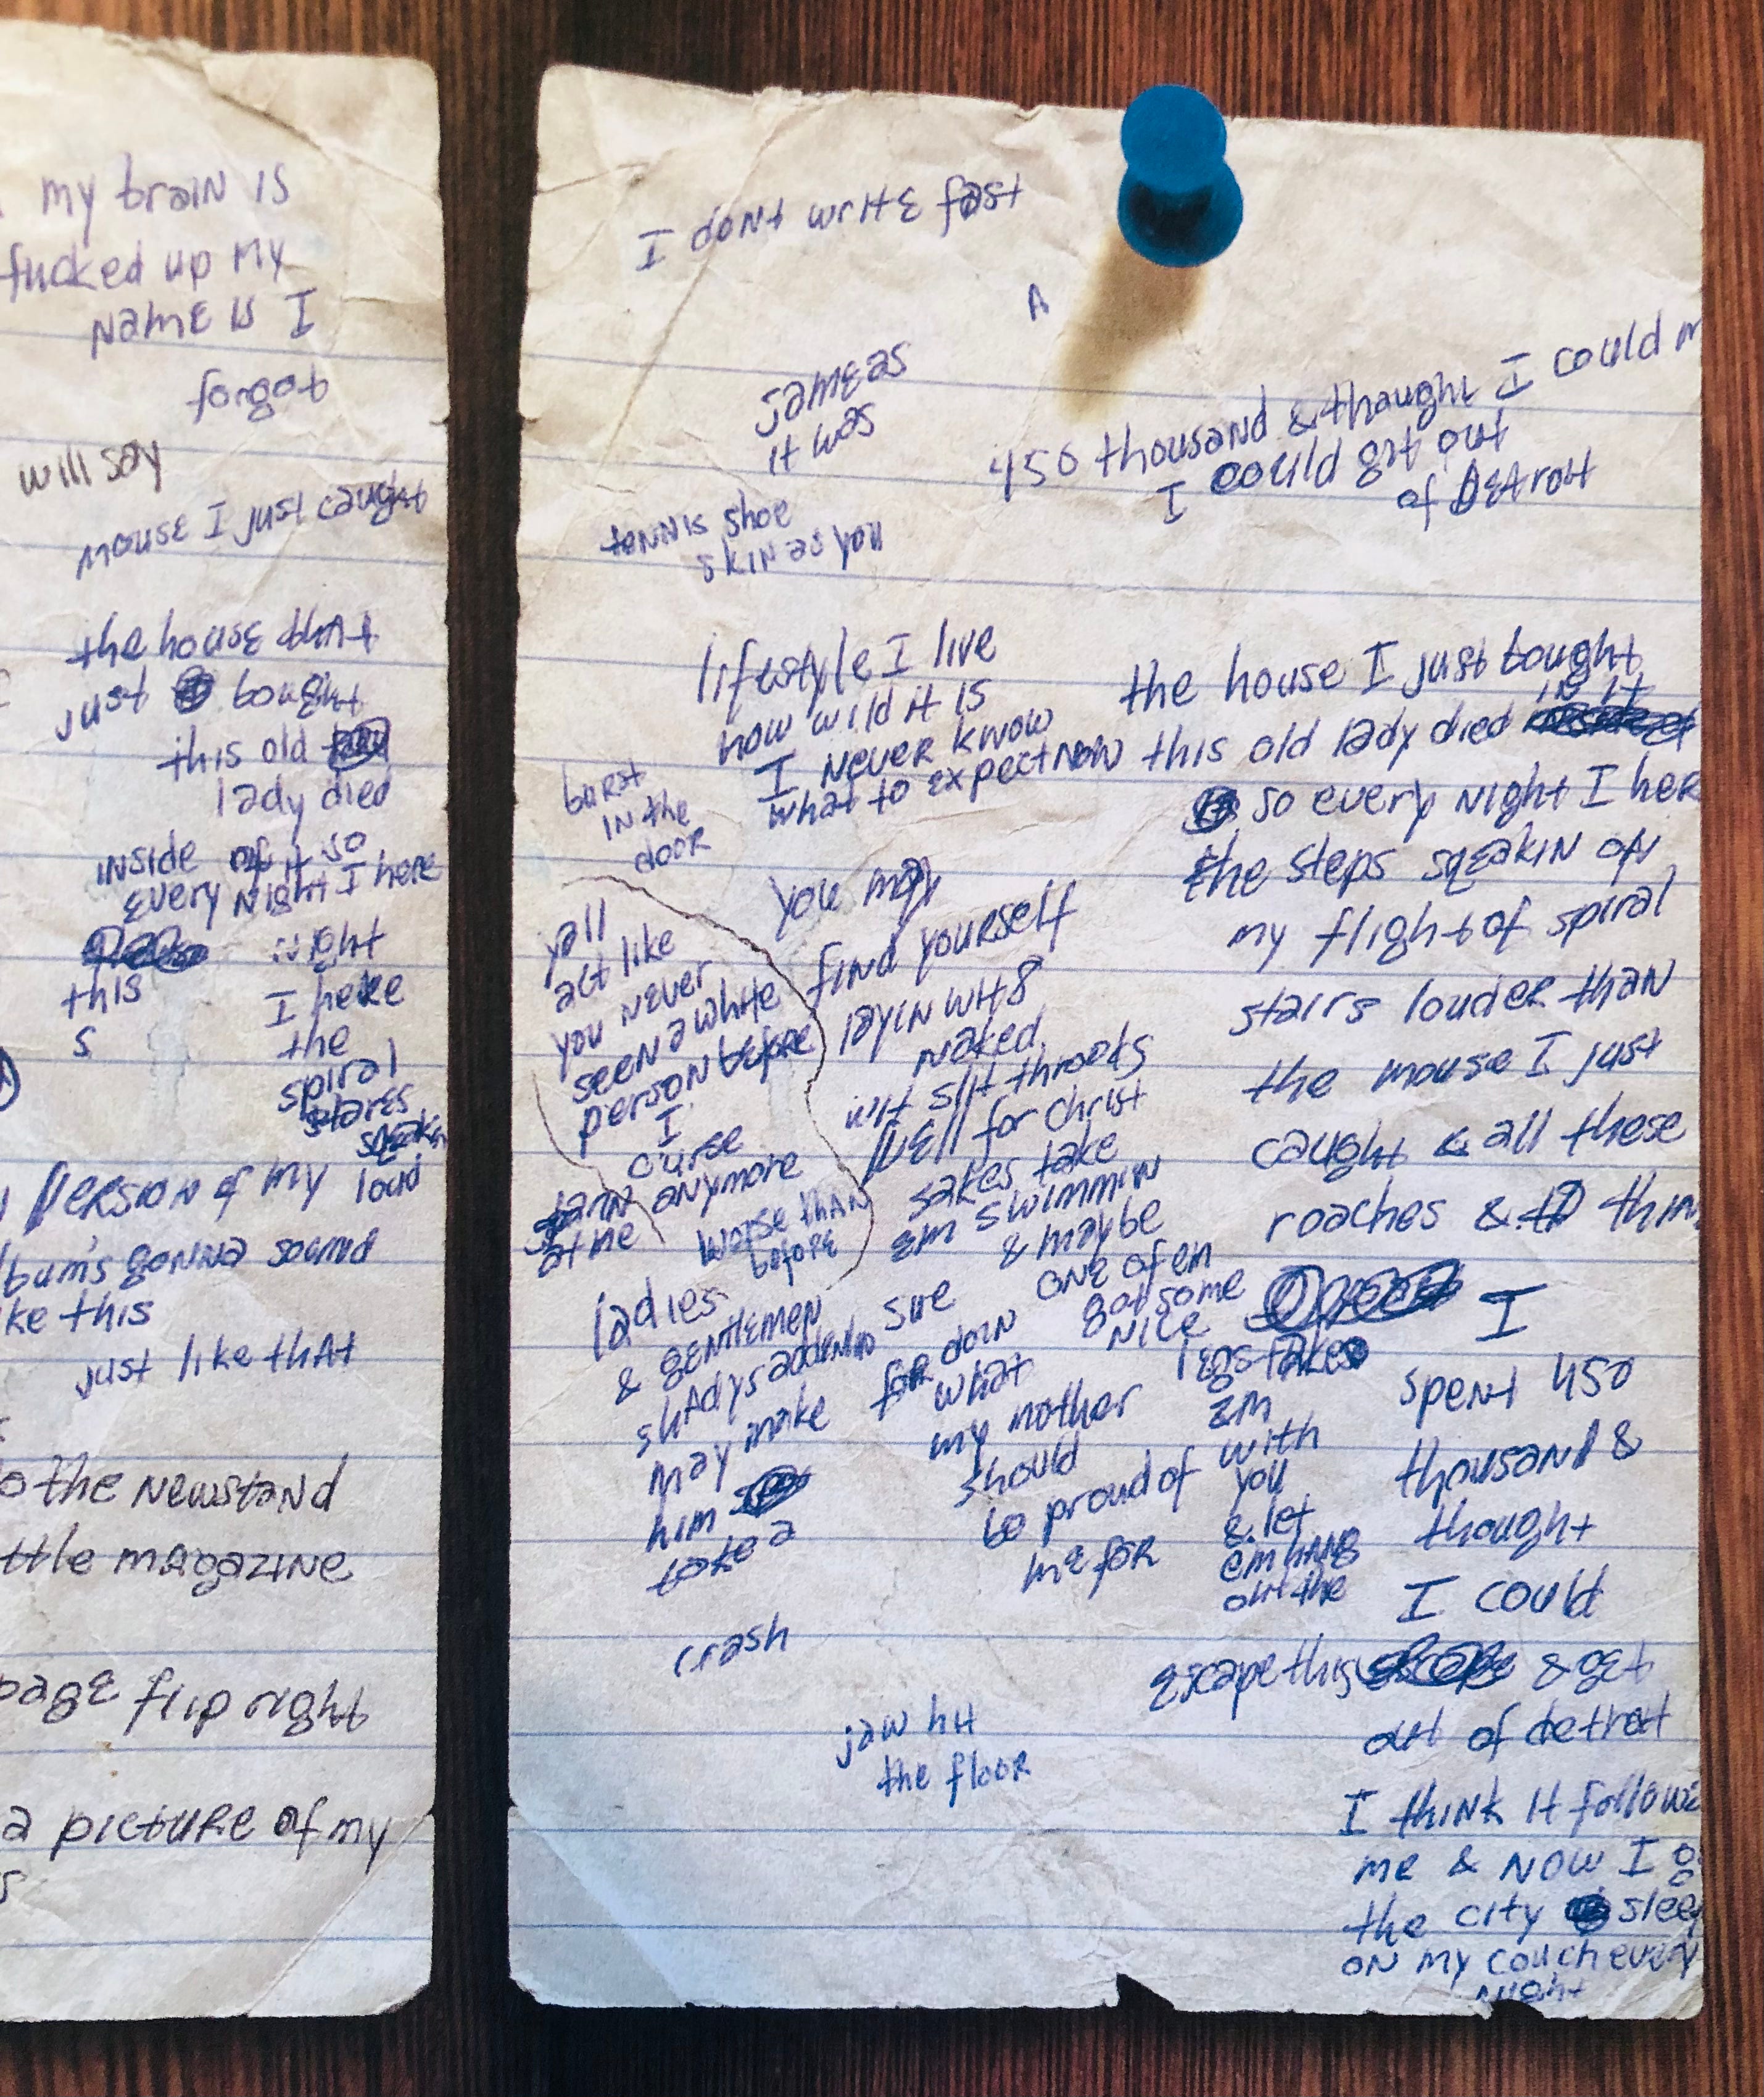 my brain is
fucked up my
name is I
forgot
will say
mouse I just caught
the house that
just bought
this old
lady died
inside of it so
every night I here
night
this
I here
s
the
spiral
stares
squeakn
version of my loud
bum's gonna sound
ke this
just like that
o the newstand
ttle magazine
page flip right
a picture of my
s
I dont write fast
A
same as
it was
450 thousand & thaught I could
I could get out
of Detroit
tennis shoe
skin as you
lifestyle I live
how wild it is
I never know
what to expect now
burst
in the
door
yall
act like
you never
seen a white
person before
I
curse
anymore
at me
worse than
before
ladies
& gentlemen
shadys addendin
may make
him
take a
crash
jaw hit
the floor
you may
find yourself
layin wit 8
naked
wit slit throats
well for christ
sakes take
em swimmin
& maybe
one of em
got some
nice
legs take
em
with
you
& let
em hang
out the
sue
for doin
what
my mother
should
be proud of
me for
the house I just bought
this old lady died in it
so every night I her
the steps sqeakin on
my flight of spiral
stairs louder than
the mouse I just
caught & all these
roaches &
I
spent 450
thousand &
thought
I could
escape this & get
out of detroit
I think it follow
me & now I g
the city sleep
on my couch every
night